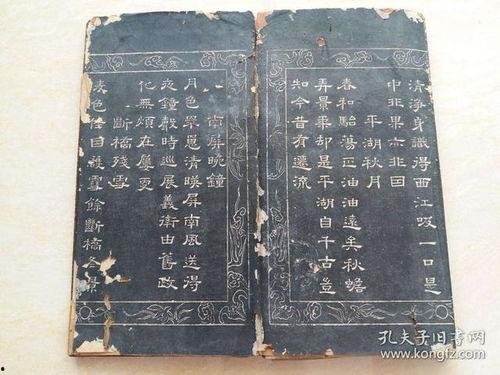 清淨身識得西江吸一口是
中非果亦非因
平湖秋月
春和駘蕩正油油遠矣秋蟾
弄景乘却是平湖自千古豈
知今昔有遷流
南屏晚鐘
月色罘罳清暎屏南風送得
夜鐘聲時巡展義衛由舊政
化無頗在屢更
斷橋殘雪
色 雪餘斷橋冬景
孔夫子旧书网
www.kongfz.com